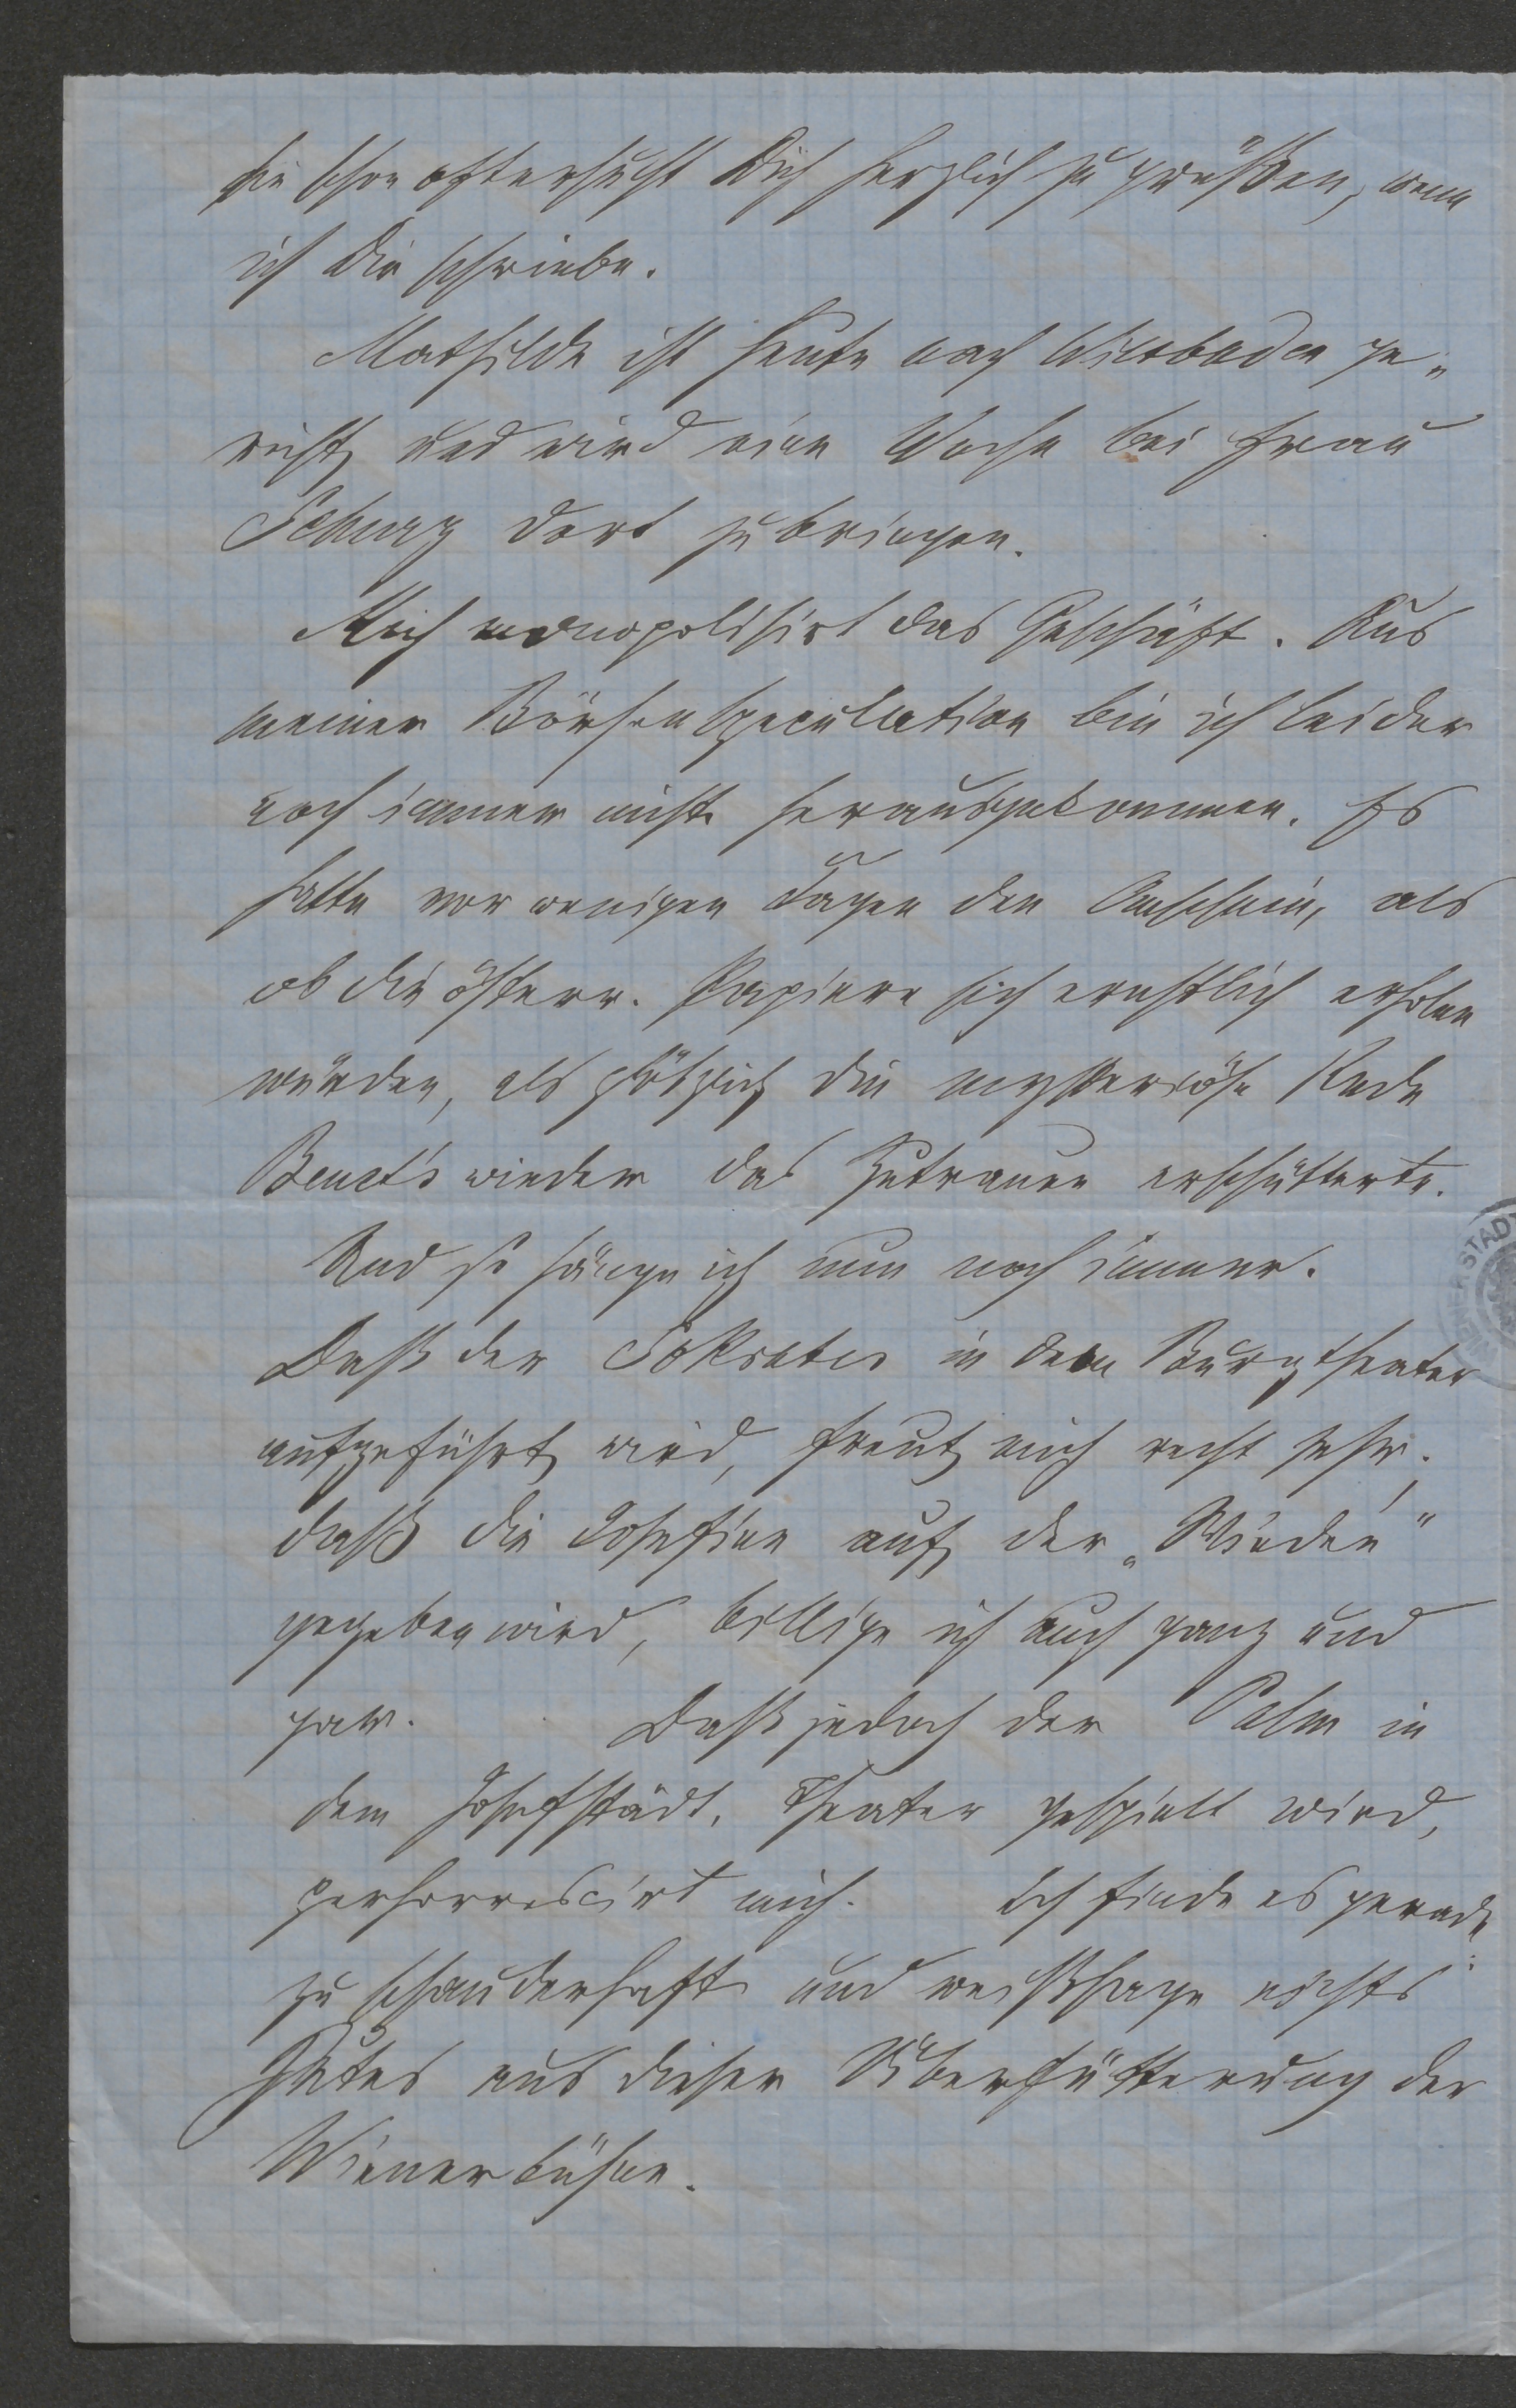 sie schon oft ersucht Dich herzlich zu grüßen, wenn
ich Dir schriebe.
Mathilde ist heute nach Wiesbaden ge-
reist und wird eine Woche bei Frau
Schurz dort zubringen.
Mich monopolisirt das Geschäft. Aus
meiner Börsenspeculation bin ich leider
noch immer nicht herausgekommen. Es
hatte vor wenigen Tagen den Anschein, als
ob die österr. Papiere sich ernstlich erholen
würden, als plötzlich die mysteriöse Rede
Beust's wieder das Zutrauen erschütterte.
Und so hänge ich nun noch immer.
Daß der Sokrates in dem Burgtheater
aufgeführt wird, freut mich recht sehr;
daß die Josefine auf der „Wieden"
gegeben wird, billige ich auch ganz und
gar. Daß jedoch der Palm in
dem Josefstädt. Theater gespielt wird,
perhorrescirt mich. Ich finde es gerade
zu schauderhaft und weissage nichts
Gutes aus dieser Überfütterung der
Wienerbühne.